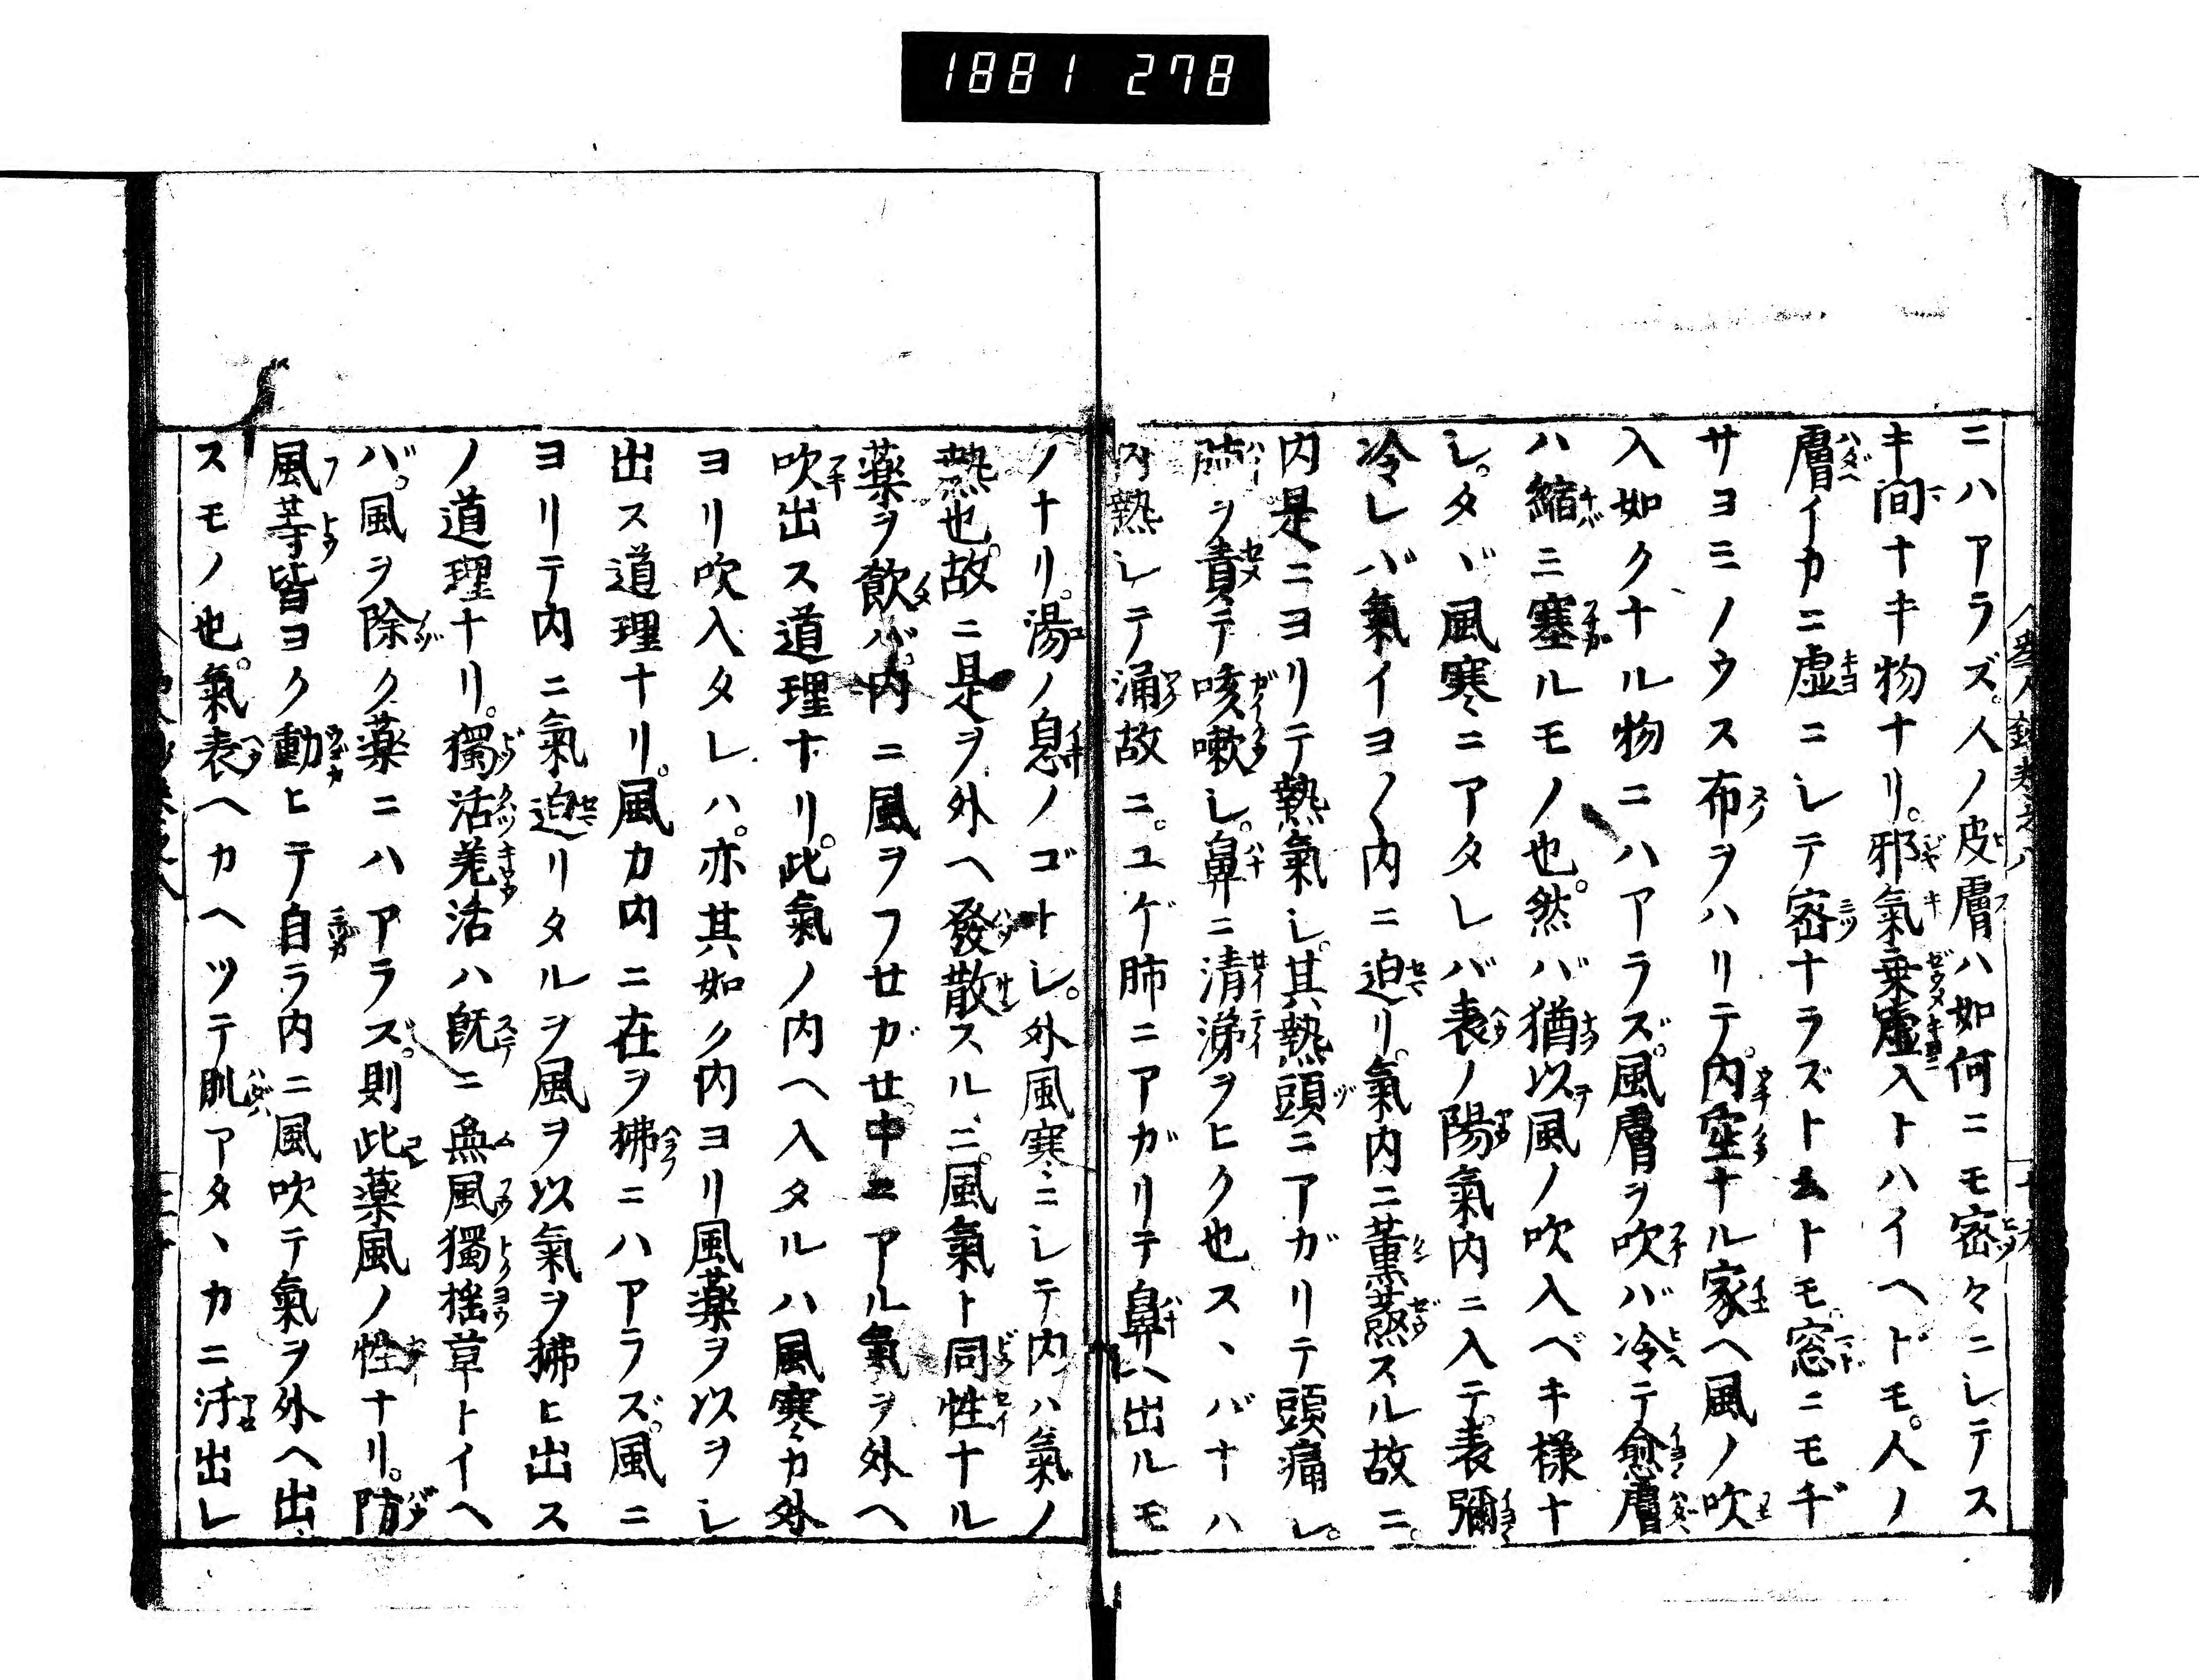 1881 278
ニハアラズ。人ノ皮膚ハ如何ニモ密々ニシテス
キ間ナキ物ナリ。邪氣乗虚入トハイヘドモ。人ノ
膚イカニ虚ニシテ密ナラズトムトモ。窓ニモヂ
サヨミノウス布ヲハリテ。内空ナル家ヘ風ノ吹
入如クナル物ニハアラズ。風膚ヲ吹バ冷テ愈膚
ハ縮ミ塞ルモノ也。然バ猶以風ノ吹入ベキ様ナ
シ。タヾ風寒ニアタレバ表ノ陽氣内ニ入テ。表彌
冷レバ氣イヨ〳〵内ニ迫リ。氣内ニ薫蒸スル故ニ。
内是ニヨリテ熱氣シ。其熱頭ニアガリテ頭痛シ。
肺ヲ責テ咳嗽シ。鼻ニ清涕ヲヒク也スヽバナハ
内熱シテ涌故ニ。ユゲ肺ニアガリテ鼻ヘ出ルモ
ノナリ。湯ノ息ノゴトシ。外風寒ニシテ内ハ氣ノ
熱也。故ニ是ヲ外ヘ發散スルニ。風氣ト同性ナル
藥ヲ飲バ。内ニ風ヲフサガせ。中ニアル氣ヲ外ヘ
吹出ス道理ナリ。此氣ノ内ヘ入タルハ風寒カ外
ヨリ吹入タレハ。亦其如ク内ヨリ風藥ヲ以ヲシ
出ス道理ナリ。風カ内ニ在ヲ拂ニハアラズ。風ニ
ヨリテ内ニ氣迫リタルヲ風ヲ以氣ヲ拂ヒ出ス
ノ道理ナリ。獨活羗活ハ既ニ無風獨揺草トイヘ
バ。風ヲ除ク藥ニハアラズ。則此藥風ノ性ナリ。防
風等皆ヨク動ヒテ自ラ内ニ風吹テ氣ヲ外ヘ出
スモノ也。氣表ヘカヘツテ肌アタヽカニ汗出シ